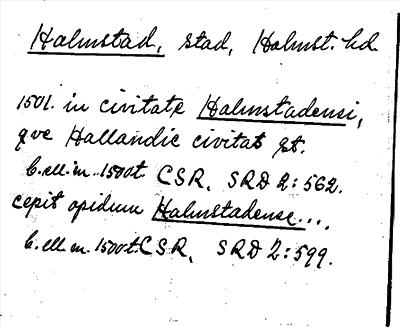 Halmstad, stad, Halmst. hd
1501. in civitate Halmstadensi,
qve Hallandie civitas est.
b. ell. m. 1500t. CSR, SRD 2:562.
cepit opidum Halmstadense...
b. ell. m. 1500t. CSR, SRD 2:599.